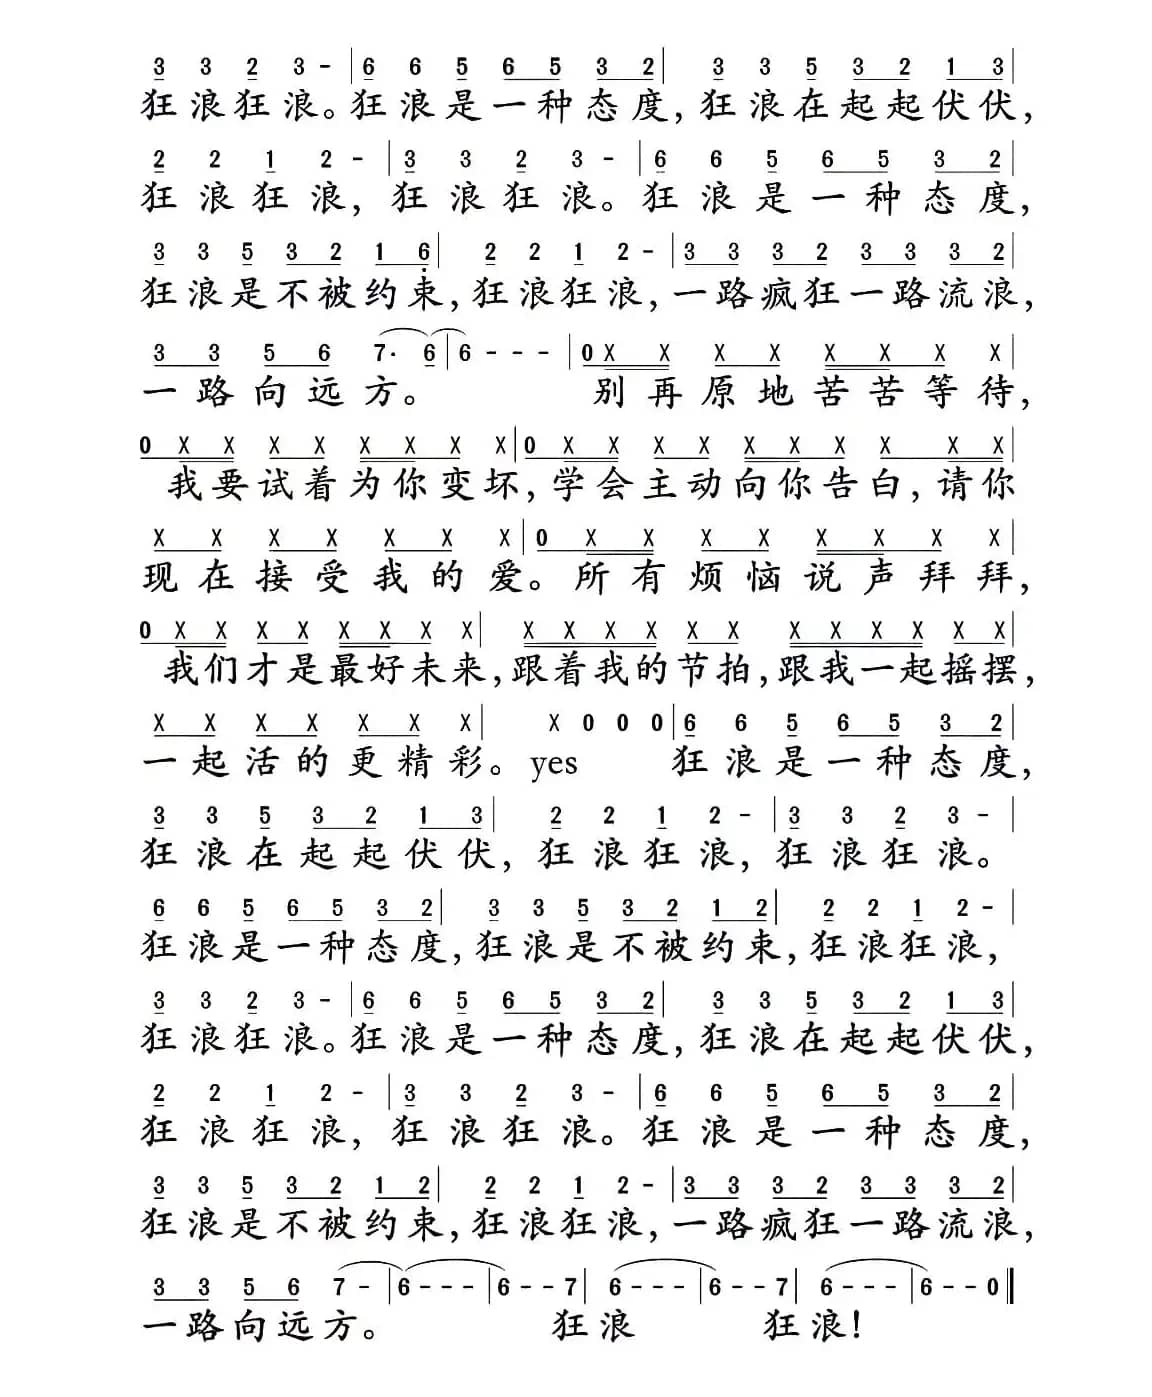 3 3 2 3 - | 6 6 5 6 5 3 2 | 3 3 5 3 2 1 3 |
狂浪狂浪。狂浪是一种态度,狂浪在起起伏伏,
2 2 1 2 - | 3 3 2 3 - | 6 6 5 6 5 3 2 |
狂浪狂浪,狂浪狂浪。狂浪是一种态度,
3 3 5 3 2 1 6 | 2 2 1 2 - | 3 3 3 2 3 3 3 2 |
狂浪是不被约束,狂浪狂浪,一路疯狂一路流浪,
3 3 5 6 7· 6 | 6 - - - | 0 X X X X X X X X |
一路向远方。 别再原地苦苦等待,
0 X X X X X X X X | 0 X X X X X X X X X X |
我要试着为你变坏,学会主动向你告白,请你
X X X X X X X | 0 X X X X X X X X |
现在接受我的爱。所有烦恼说声拜拜,
0 X X X X X X X X | X X X X X X X X X X X X |
我们才是最好未来,跟着我的节拍,跟我一起摇摆,
X X X X X X X | X 0 0 0 | 6 6 5 6 5 3 2 |
一起活的更精彩。yes 狂浪是一种态度,
3 3 5 3 2 1 3 | 2 2 1 2 - | 3 3 2 3 - |
狂浪在起起伏伏,狂浪狂浪,狂浪狂浪。
6 6 5 6 5 3 2 | 3 3 5 3 2 1 2 | 2 2 1 2 - |
狂浪是一种态度,狂浪是不被约束,狂浪狂浪,
3 3 2 3 - | 6 6 5 6 5 3 2 | 3 3 5 3 2 1 3 |
狂浪狂浪。狂浪是一种态度,狂浪在起起伏伏,
2 2 1 2 - | 3 3 2 3 - | 6 6 5 6 5 3 2 |
狂浪狂浪,狂浪狂浪。狂浪是一种态度,
3 3 5 3 2 1 2 | 2 2 1 2 - | 3 3 3 2 3 3 3 2 |
狂浪是不被约束,狂浪狂浪,一路疯狂一路流浪,
3 3 5 6 7 - | 6 - - - | 6 - - 7 | 6 - - - | 6 - - 7 | 6 - - - | 6 - - 0 ‖
一路向远方。 狂浪 狂浪!